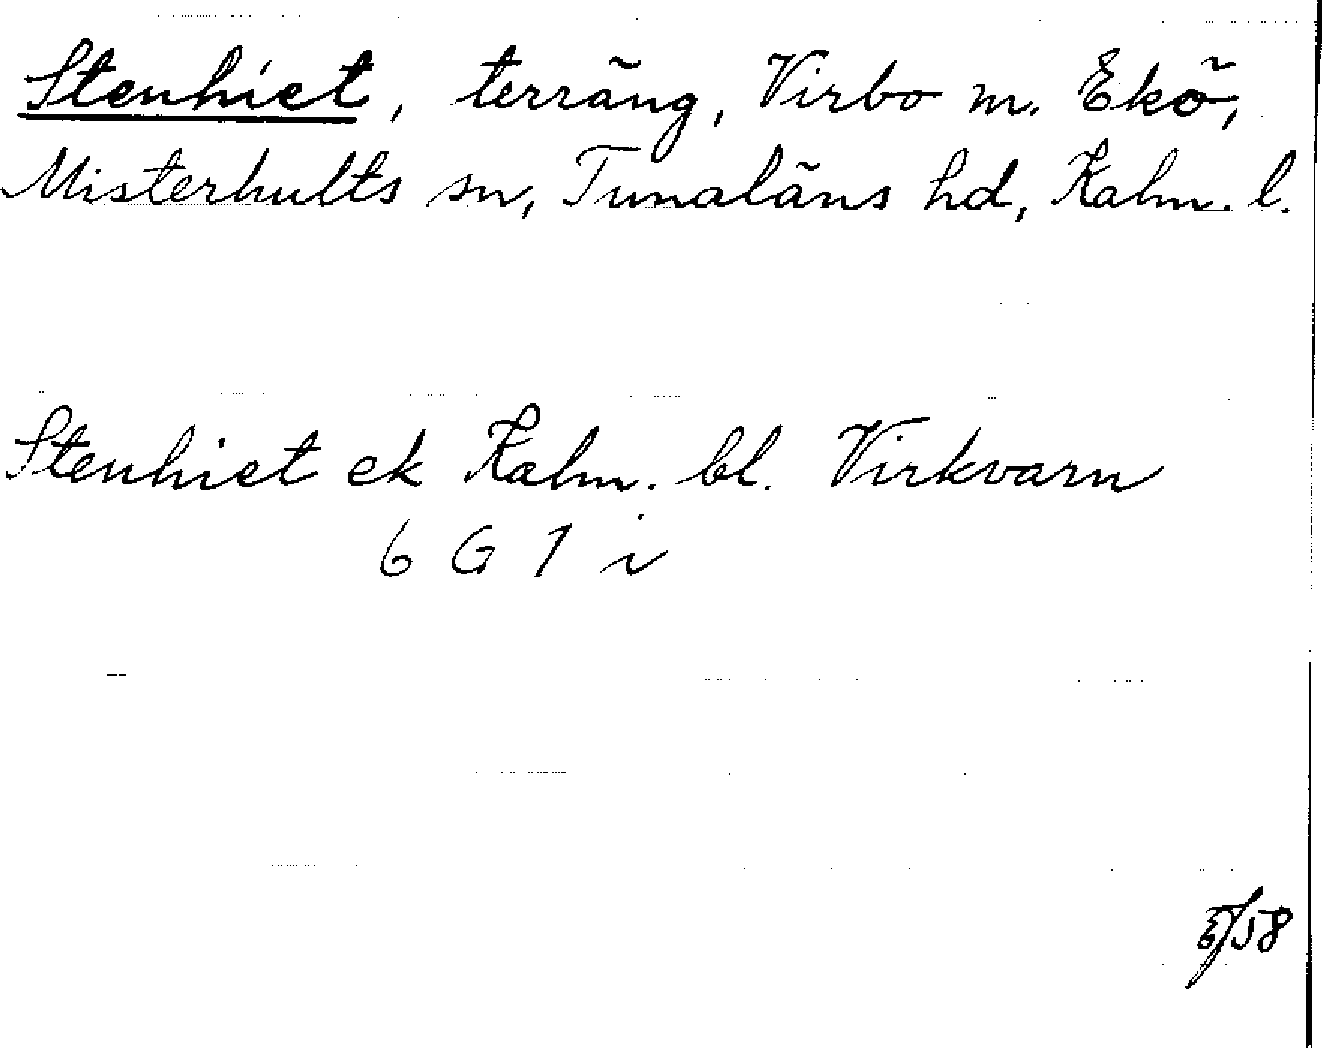 Stenhiet, terräng, Virbo m. Ekö,
Misterhults sn, Tunaläns hd, Kalm. l.
Stenhiet ek Kalm. bl. Virkvarn
6 G 1 i